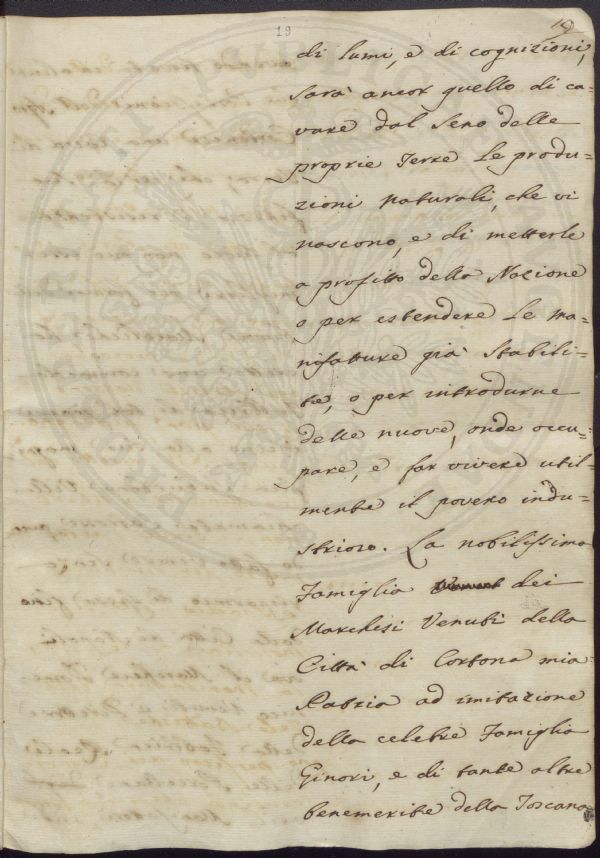 19
19
di lumi, e di cognizioni,
sarà ancor quello di ca-
vare dal seno delle
proprie Terre le produ=
zioni naturali, che vi
nascono, e di metterle
a profitto della Nazione
o per estendere le ma-
nifatture già stabili=
te, o per introdurne
delle nuove, onde occu=
pare, e far vivere util=
mente il povero indu=
strioso. La nobilissima
Famiglia dei
Marchesi Venuti della
Città di Cortona mia
Patria ad imitazione
della celebre Famiglia
Ginori, e di tante altre
benemerite della Toscana